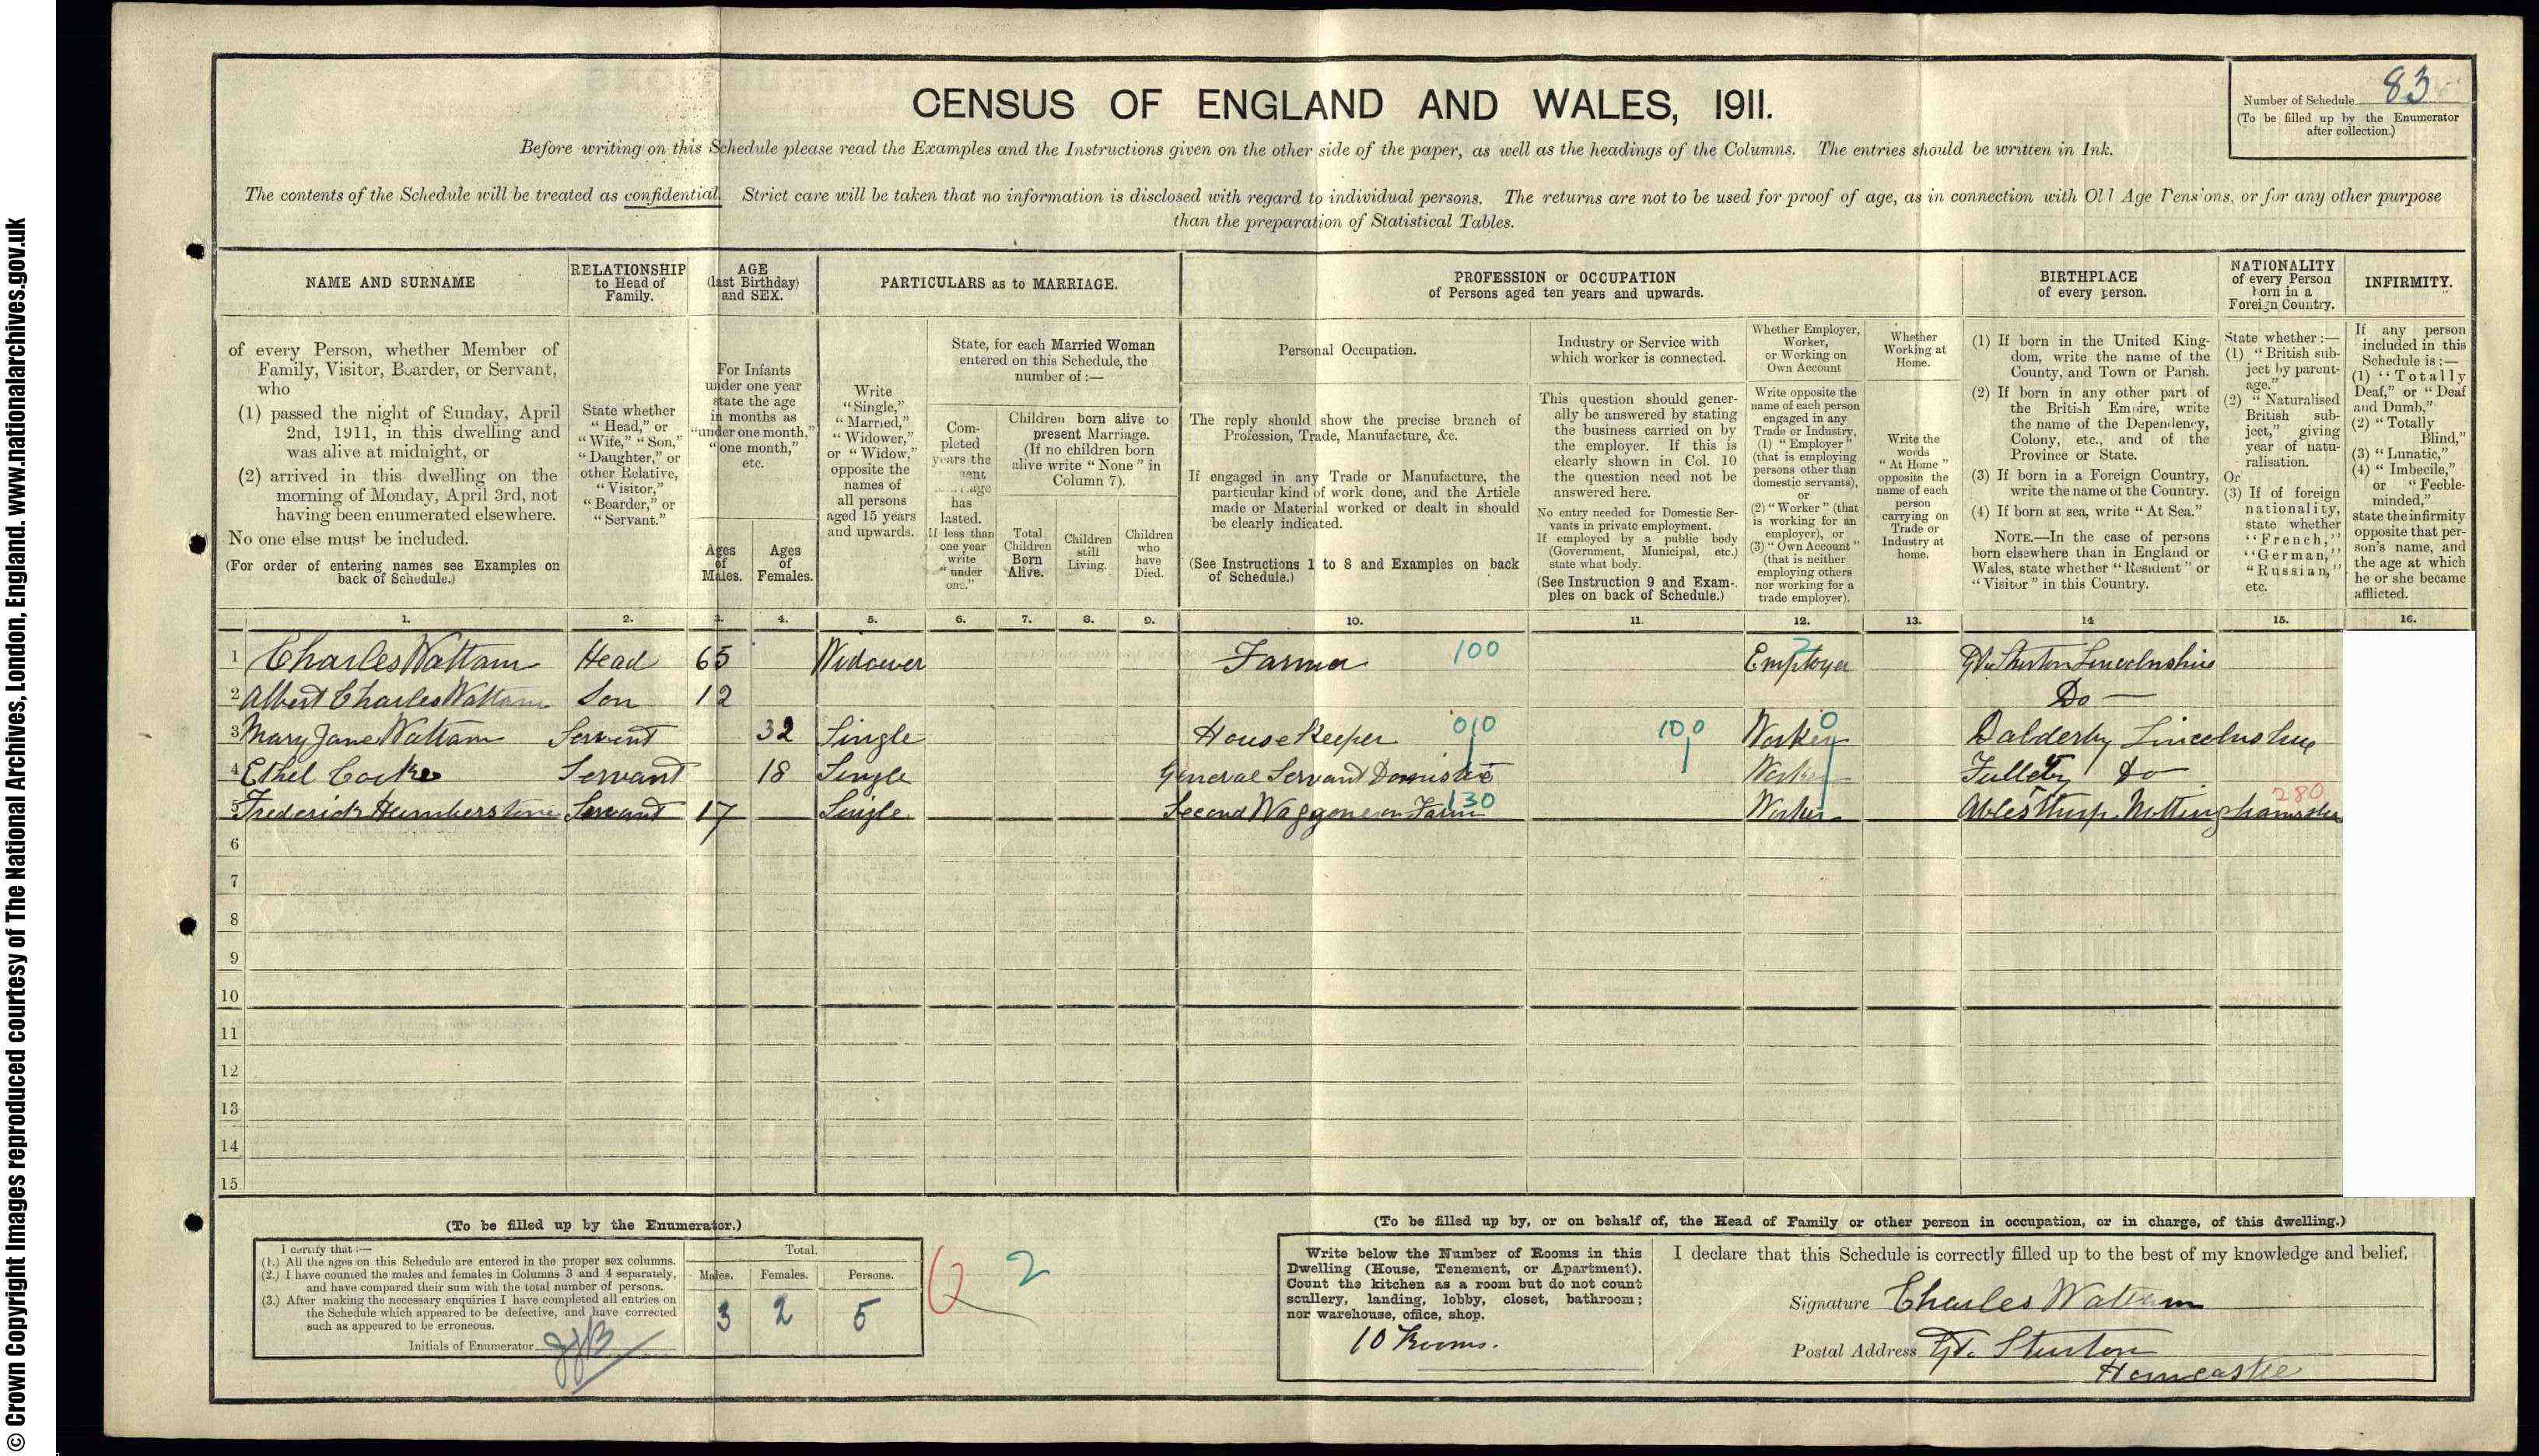 © Crown Copyright Images reproduced courtesy of The National Archives, London, England. www.nationalarchives.gov.uk
CENSUS OF ENGLAND AND WALES, 1911.
Number of Schedule 83
(To be filled up by the Enumerator
after collection.)
Before writing on this Schedule please read the Examples and the Instructions given on the other side of the paper, as well as the headings of the Columns. The entries should be written in Ink.
The contents of the Schedule will be treated as confidential. Strict care will be taken that no information is disclosed with regard to individual persons. The returns are not to be used for proof of age, as in connection with Old Age Pensions, or for any other purpose
than the preparation of Statistical Tables.
NAME AND SURNAME
of every Person, whether Member of
Family, Visitor, Boarder, or Servant,
who
(1) passed the night of Sunday, April
2nd, 1911, in this dwelling and
was alive at midnight, or
(2) arrived in this dwelling on the
morning of Monday, April 3rd, not
having been enumerated elsewhere.
No one else must be included.
(For order of entering names see Examples on
back of Schedule.)
RELATIONSHIP
to Head of
Family.
State whether
"Head," or
"Wife," "Son,"
"Daughter," or
other Relative,
"Visitor,"
"Boarder," or
"Servant."
AGE
(last Birthday)
and SEX.
For Infants
under one year
state the age
in months as
"under one month,"
"one month,"
etc.
Ages
of
Males.
Ages
of
Females.
PARTICULARS as to MARRIAGE.
Write
"Single,"
"Married,"
"Widower,"
or "Widow,"
opposite the
names of
all persons
aged 15 years
and upwards.
State, for each Married Woman
entered on this Schedule, the
number of:—
Com-
pleted
years the
has
lasted.
If less than
one year
write
"under
one."
Children born alive to
present Marriage.
(If no children born
alive write "None" in
Column 7).
Total
Children
Born
Alive.
Children
still
Living.
Children
who
have
Died.
PROFESSION or OCCUPATION
of Persons aged ten years and upwards.
Personal Occupation.
The reply should show the precise branch of
Profession, Trade, Manufacture, &c.
If engaged in any Trade or Manufacture, the
particular kind of work done, and the Article
made or Material worked or dealt in should
be clearly indicated.
(See Instructions 1 to 8 and Examples on back
of Schedule.)
Industry or Service with
which worker is connected.
This question should gener-
ally be answered by stating
the business carried on by
the employer. If this is
clearly shown in Col. 10
the question need not be
answered here.
No entry needed for Domestic Ser-
vants in private employment.
If employed by a public body
(Government, Municipal, etc.)
state what body.
(See Instruction 9 and Exam-
ples on back of Schedule.)
Whether Employer,
Worker,
or Working on
Own Account
Write opposite the
name of each person
engaged in any
Trade or Industry,
(1) "Employer"
(that is employing
persons other than
domestic servants),
or
(2) "Worker" (that
is working for an
employer), or
(3) "Own Account"
(that is neither
employing others
nor working for a
trade employer).
Whether
Working at
Home.
Write the
words
"At Home"
opposite the
name of each
person
carrying on
Trade or
Industry at
home.
BIRTHPLACE
of every person.
(1) If born in the United King-
dom, write the name of the
County, and Town or Parish.
(2) If born in any other part of
the British Empire, write
the name of the Dependency,
Colony, etc., and of the
Province or State.
(3) If born in a Foreign Country,
write the name of the Country.
(4) If born at sea, write "At Sea."
NOTE.—In the case of persons
born elsewhere than in England or
Wales, state whether "Resident" or
"Visitor" in this Country.
NATIONALITY
of every Person
born in a
Foreign Country.
State whether:—
(1) "British sub-
ject by parent-
age."
(2) "Naturalised
British sub-
ject," giving
year of natu-
ralisation.
Or
(3) If of foreign
nationality,
state whether
"French,"
"German,"
"Russian,"
etc.
INFIRMITY.
If any person
included in this
Schedule is:—
(1) "Totally
Deaf," or "Deaf
and Dumb,"
(2) "Totally
Blind,"
(3) "Lunatic,"
(4) "Imbecile,"
or "Feeble-
minded,"
state the infirmity
opposite that per-
son's name, and
the age at which
he or she became
afflicted.
1. 2. 3. 4. 5. 6. 7. 8. 9. 10. 11. 12. 13. 14 15. 16.
1 Charles Wattam Head 65 Widower Farmer 100 Employer 2 Gt. Sturton Lincolnshire
2 Albert Charles Wattam Son 12 Do —
3 Mary Jane Wattam Servant 32 Single House Keeper 010 100 Worker 0 Dalderby Lincolnshire
4 Ethel Cocke Servant 18 Single General Servant Domestic Worker Fulletby Do
5 Frederick Humberstone Servant 17 Single Second Waggoner on Farm 130 Worker Ablesthorp Nottinghamshire 280
6
7
8
9
10
11
12
13
14
15
(To be filled up by the Enumerator.)
I certify that:—
(1.) All the ages on this Schedule are entered in the proper sex columns.
(2.) I have counted the males and females in Columns 3 and 4 separately,
and have compared their sum with the total number of persons.
(3.) After making the necessary enquiries I have completed all entries on
the Schedule which appeared to be defective, and have corrected
such as appeared to be erroneous.
Initials of Enumerator
Total.
Males. Females. Persons.
3 2 5
2
(To be filled up by, or on behalf of, the Head of Family or other person in occupation, or in charge, of this dwelling.)
Write below the Number of Rooms in this
Dwelling (House, Tenement, or Apartment).
Count the kitchen as a room but do not count
scullery, landing, lobby, closet, bathroom;
nor warehouse, office, shop.
10 Rooms.
I declare that this Schedule is correctly filled up to the best of my knowledge and belief.
Signature Charles Wattam
Postal Address Gt. Sturton
Horncastle